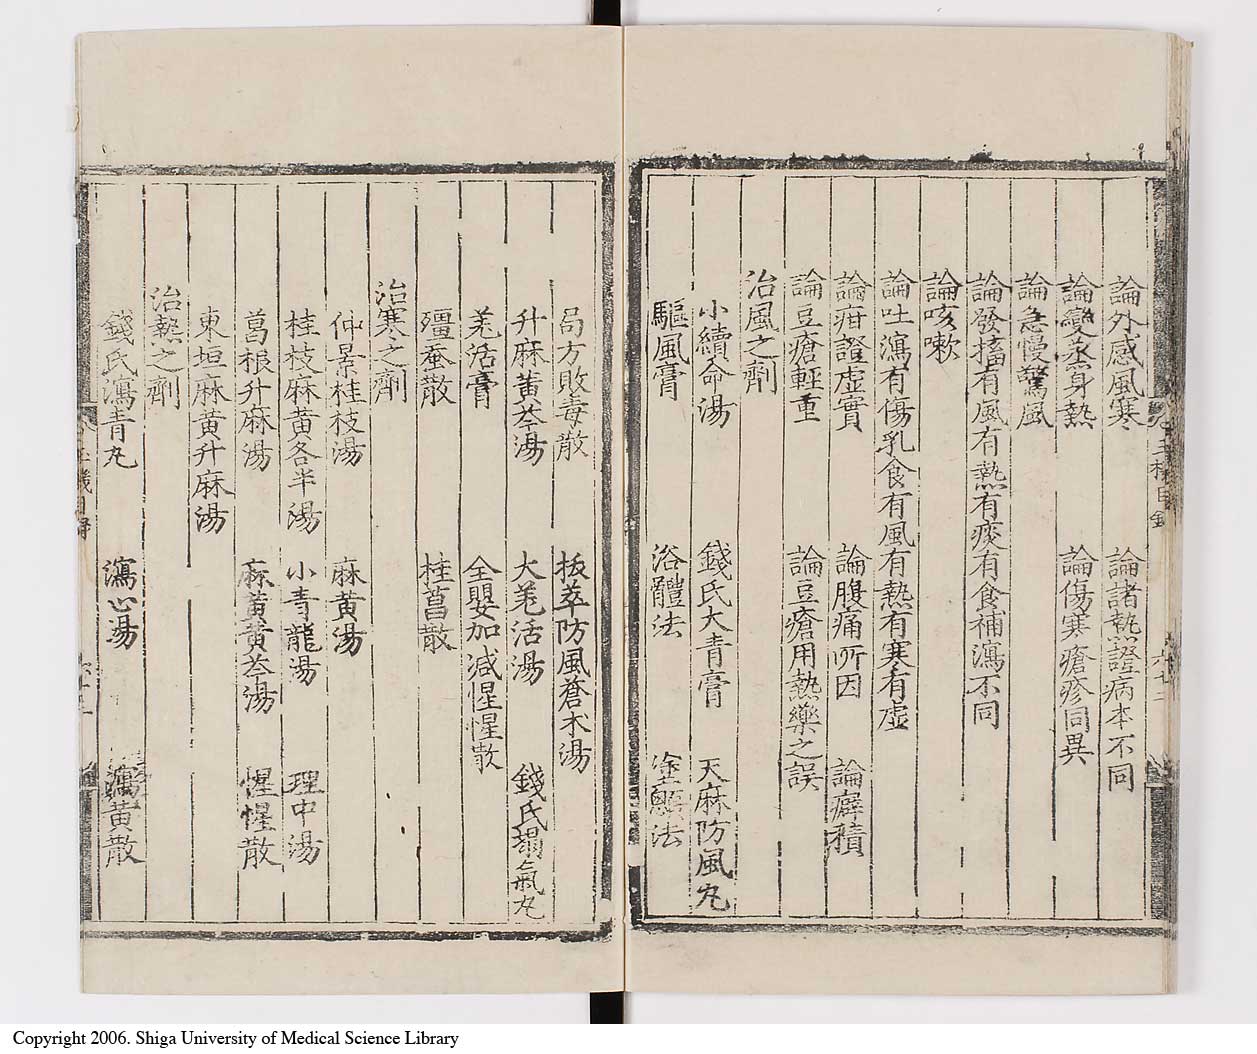 論外感風寒 論諸熱證病本不同
論變蒸身熱 論傷寒瘡疹同異
論急慢驚風
論發搐有風有熱有痰有食補瀉不同
論咳嗽
論吐瀉有傷乳食有風有熱有寒有虛
論疳證虛實 論腹痛所因 論癖積
論豆瘡輕重 論豆瘡用熱藥之誤
治風之劑
小續命湯 錢氏大青膏 天麻防風丸
驅風膏 浴體法 塗顖法
局方敗毒散 拔萃防風蒼朮湯
升麻黃芩湯 大羌活湯 錢氏褐氣丸
羌活膏 全嬰加減惺惺散
殭蚕散 桂菖散
治寒之劑
仲景桂枝湯 麻黃湯
桂枝麻黃各半湯 小青龍湯 理中湯
葛根升麻湯 麻黃黃芩湯 惺惺散
東垣麻黃升麻湯
治熱之劑
錢氏瀉青丸 瀉心湯 瀉黃散
Copyright 2006. Shiga University of Medical Science Library